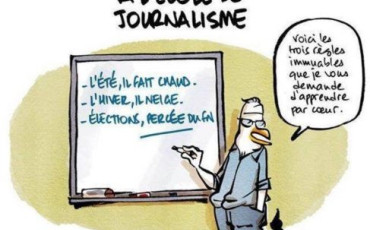 JOURNALISME
- L'ÉTÉ, IL FAIT CHAUD.
- L'HIVER, IL NEIGE.
- ÉLECTIONS, PERCÉE DU FN
Voici les
trois règles
immuables
que je vous
demande
d'apprendre
par cœur.